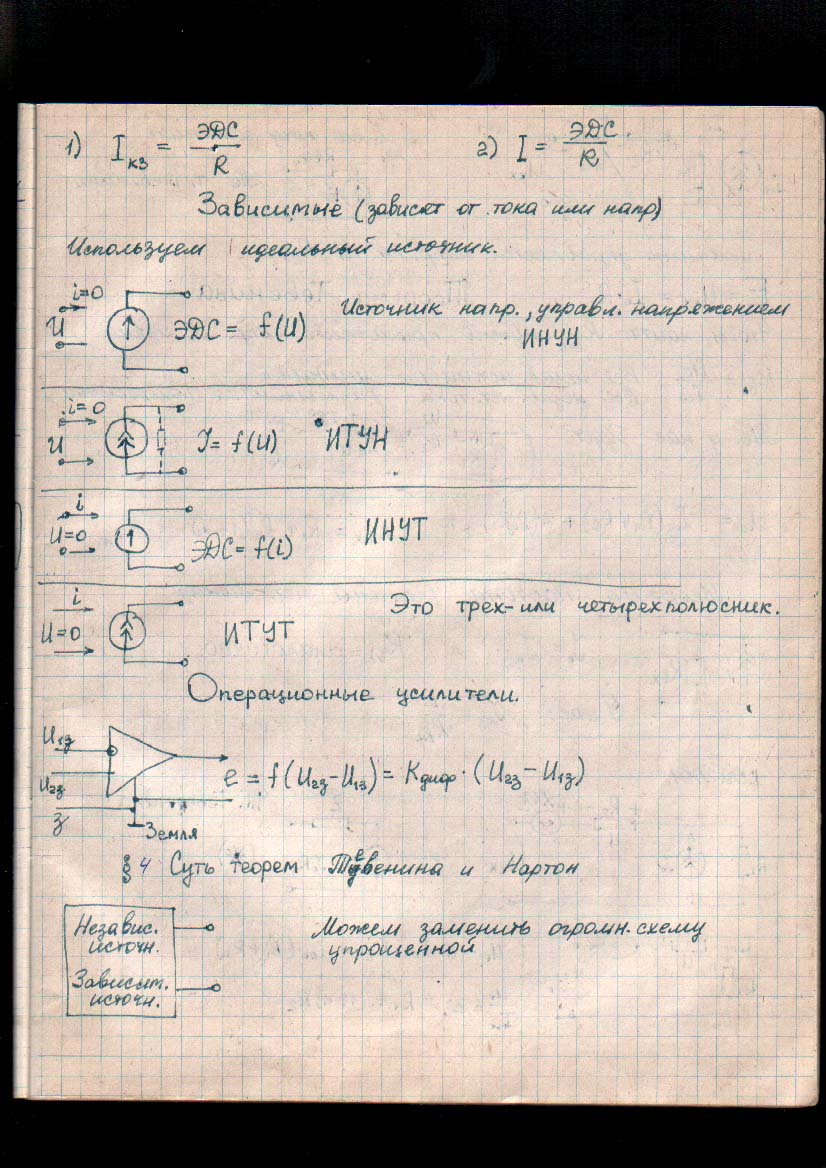 1) Iкз = ЭДС / R 2) I = ЭДС / R
Зависимые (зависят от тока или напр)
Используем идеальный источник.
i=0
U
ЭДС = f(U)
Источник напр., управл. напряжением
ИНУН
i=0
U
J = f(U) ИТУН
i
U=0
ЭДС = f(i)
ИНУТ
i
U=0
ИТУТ
Это трех- или четырехполюсник.
Операционные усилители.
U1з
U2з
з
Земля
e = f(U2з – U1з) = Kдиф · (U2з – U1з)
§ 4 Суть теорем Тевенина и Нартон
Независ.
источн.
Зависим.
источн.
Можем заменить огромн. схему
упрощенной